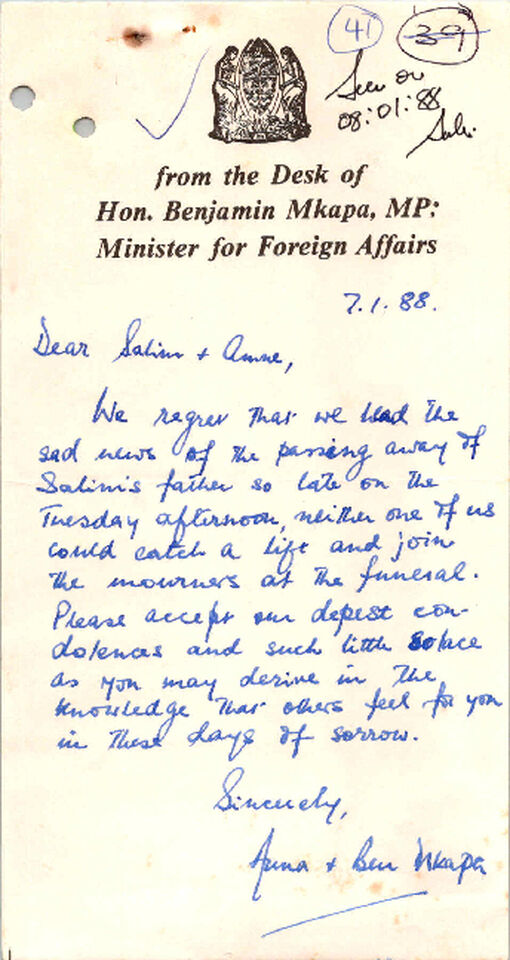 41 39
Seen on
08:01:88
Salim
from the Desk of
Hon. Benjamin Mkapa, MP:
Minister for Foreign Affairs
7.1.88.
Dear Salim + Amne,
We regret that we had the
sad news of the passing away of
Salim's father so late on the
Tuesday afternoon, neither one of us
could catch a lift and join
the mourners at the funeral.
Please accept our depest con-
dolences and such little solace
as you may derive in the
knowledge that others feel for you
in these days of sorrow.
Sincerely,
Anna + Ben Mkapa